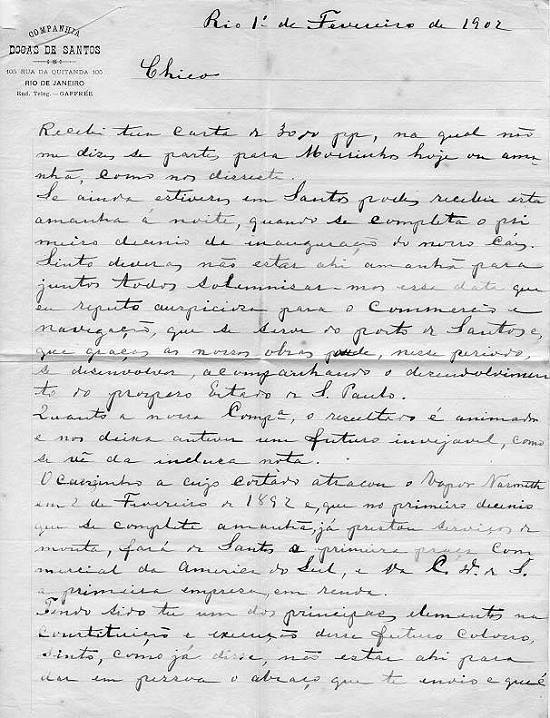 COMPANHIA
DOCAS DE SANTOS
105 RUA DA QUITANDA 105
RIO DE JANEIRO
End. Teleg. — GAFFRÉE
Rio 1º de Fevereiro de 1902
Chico
Recebi tua carta de 30 do pp, na qual não
me dizes se partes para Mossinhos hoje ou ama-
nhã, como nos disseste.
Se ainda estiveres em Santos podes receber esta
amanhã á noite, quando se completa o pri
meiro decenio da inauguração do nosso Cáes.
Sinto deveras não estar ahi amanhã para
juntos todos solemnisar-mos essa data que
eu reputo auspiciosa para o Commercio e
navegação, que se serve do porto de Santos e,
que graças as nossas obras pode, nesse periodo,
se desenvolver, acompanhando o desenvolvimen-
to do prospero Estado de S. Paulo.
Quanto a nossa Compª, o resultado é animador
e nos deixa antever um futuro invejavel, como
se vê da inclusa nota.
O Caesinho a cujo costado atracou o Vapor Nasmith
em 2 de Fevereiro de 1892 e, que no primeiro decenio
que se completa amanhã, já prestou serviços de
monta, fará de Santos a primeira praça Com
mercial da America do Sul, e da C. D. de S.
a primeira empreza, em renda.
Tendo sido tu um dos principaes elementos na
Constituição e execução desse futuro Colosso,
sinto, como já disse, não estar ahi para
dar em pessoa o abraço, que te envio e que é